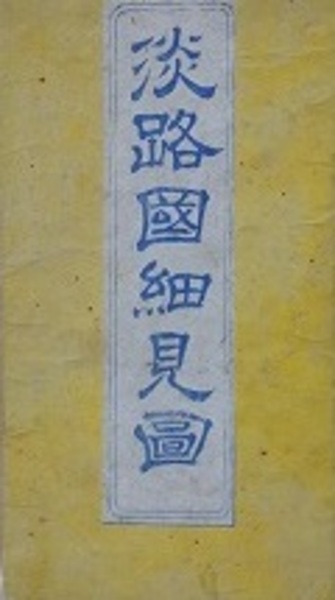 淡路國細見圖